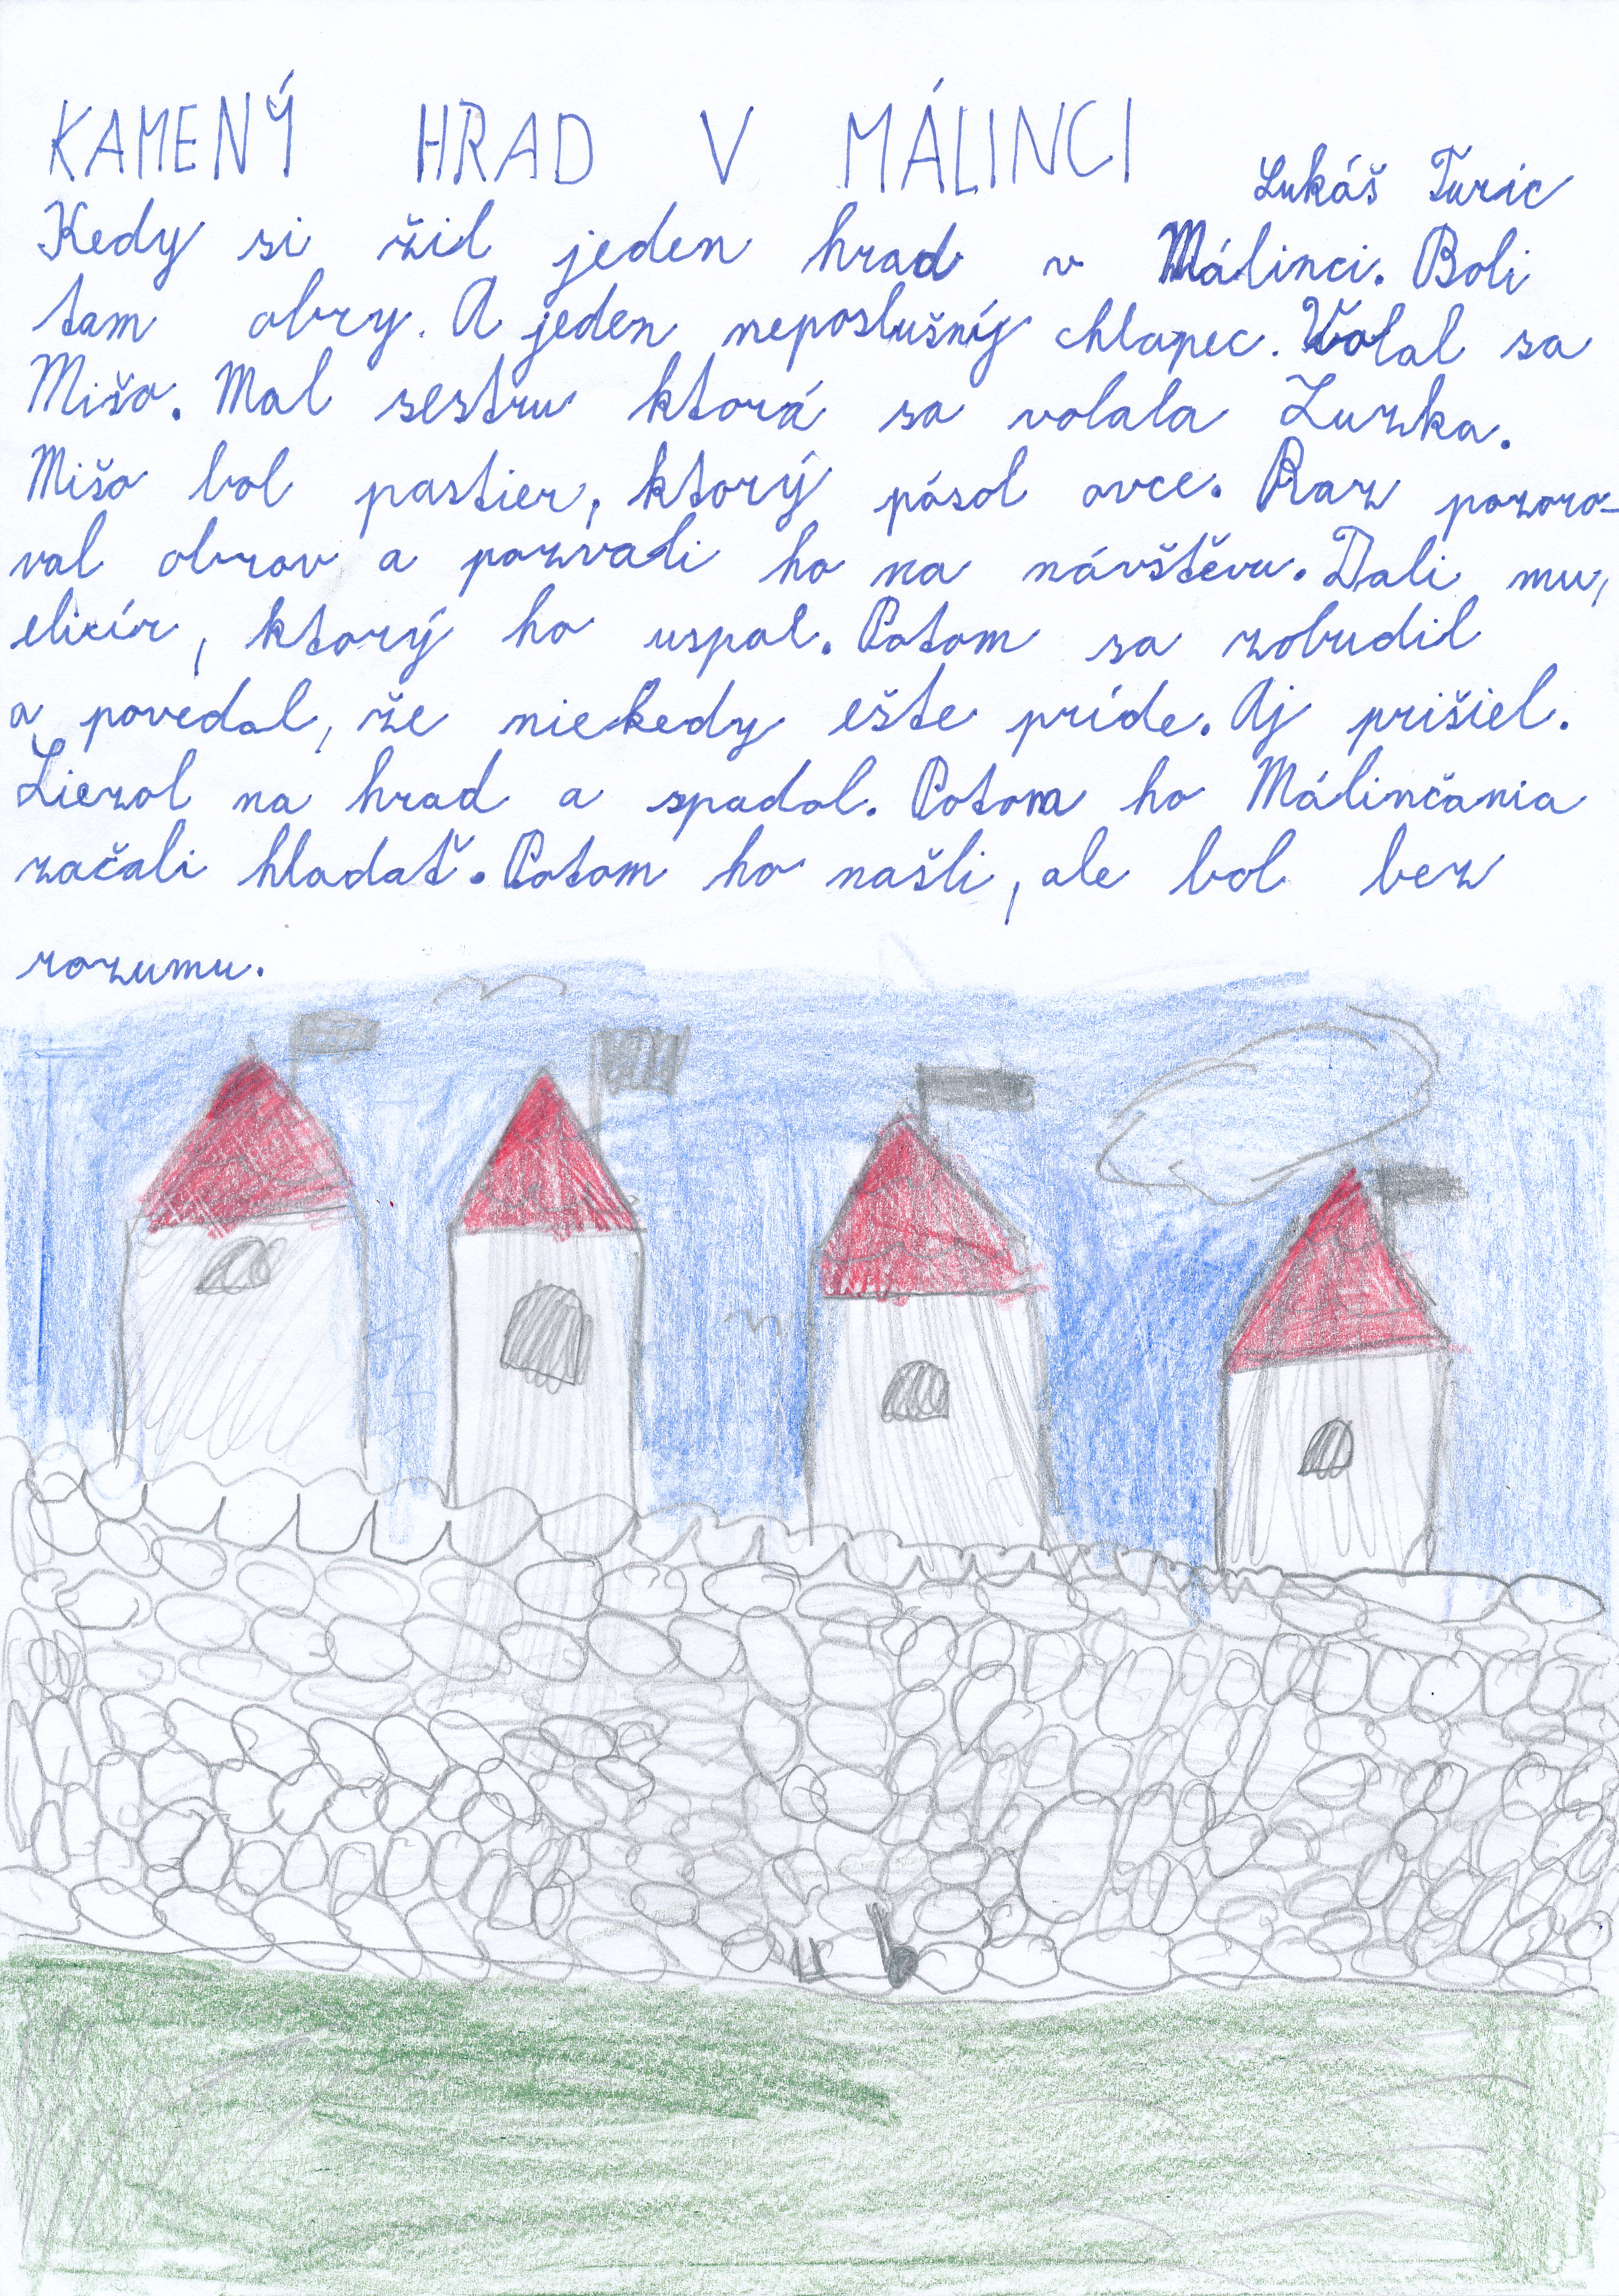 KAMENÝ HRAD V MÁLINCI
Lukáš Turic
Kedy si žil jeden hrad v Málinci. Boli
tam obry. A jeden neposlušný chlapec. Volal sa
Mišo. Mal sestru ktorá sa volala Zuzka.
Mišo bol pastier, ktorý pásol ovce. Raz pozoro-
val obrov a pozvali ho na návštěvu. Dali mu,
elixír, ktorý ho uspal. Potom sa zobudil
a povedal, že niekedy ešte príde. Aj prišiel.
Liezol na hrad a spadol. Potom ho Málinčania
začali hladať. Potom ho našli, ale bol bez
rozumu.